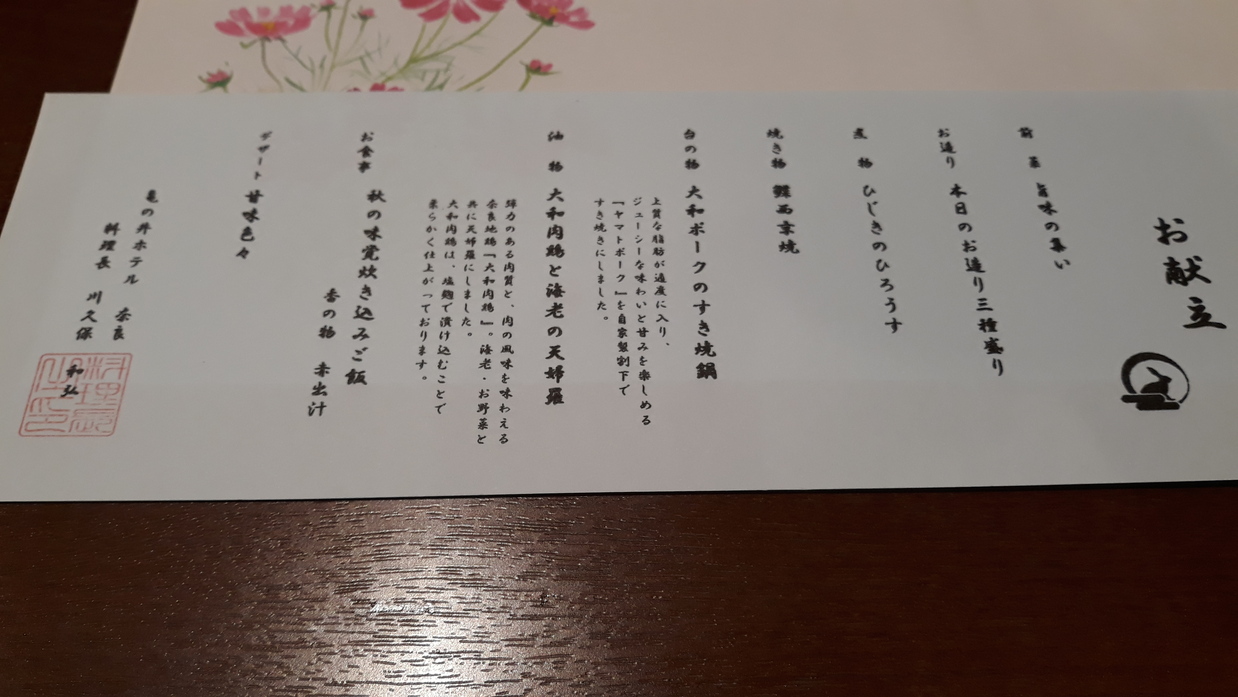 お献立
前菜 旨味の集い
お造り 本日のお造り三種盛り
煮物 ひじきのひろうす
焼き物 鰈西京焼
台の物 大和ポークのすき焼鍋
上質な脂肪が適度に入り、
ジューシーな味わいと甘みを楽しめる
『ヤマトポーク』を自家製割下で
すき焼きにしました。
油物 大和肉鶏と海老の天婦羅
弾力のある肉質と、肉の風味を味わえる
奈良地鶏『大和肉鶏』。海老・お野菜と
共に天婦羅にしました。
大和肉鶏は、塩麹で漬け込むことで
柔らかく仕上がっております。
お食事 秋の味覚炊き込みご飯
香の物 赤出汁
デザート 甘味色々
亀の井ホテル 奈良
料理長 川久保
和弘